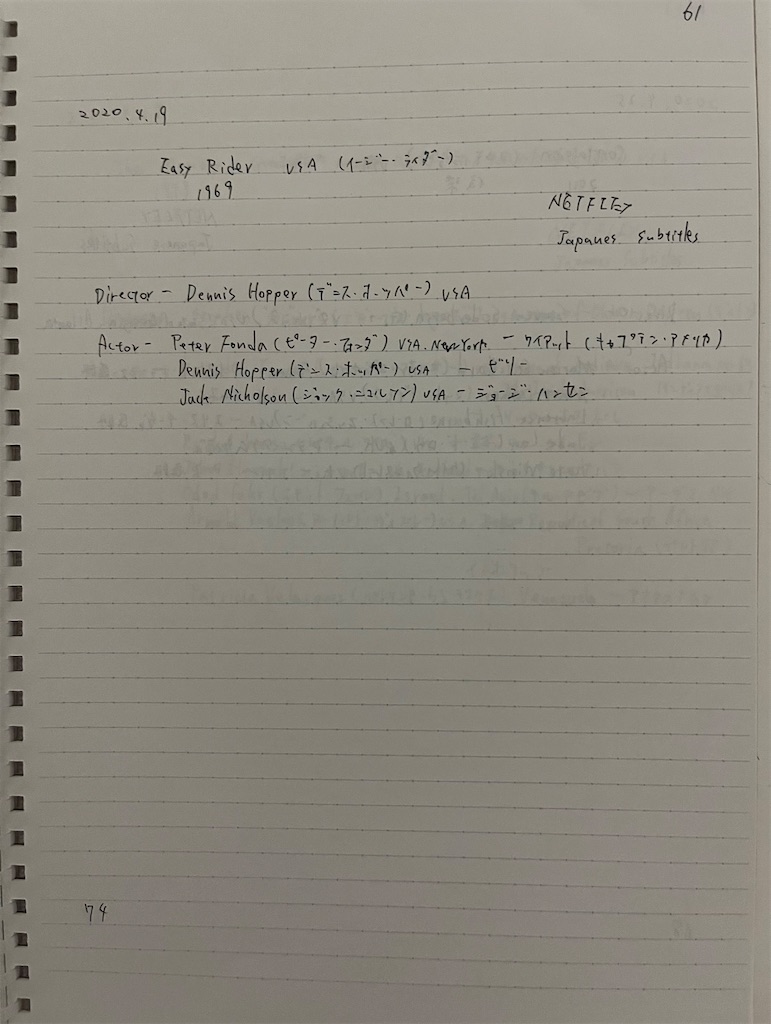 61
2020.4.19
Easy Rider USA (イージー・ライダー)
1969
NETFLIX
Japanes Subtitles
Director - Dennis Hopper (デニス・ホッパー) USA
Actor - Peter Fonda (ピーター・フォンダ) USA. NewYork - ワイアット (キャプテン・アメリカ)
Dennis Hopper (デニス・ホッパー) USA - ビリー
Jack Nicholson (ジャック・ニコルソン) USA - ジョージ・ハンセン
74